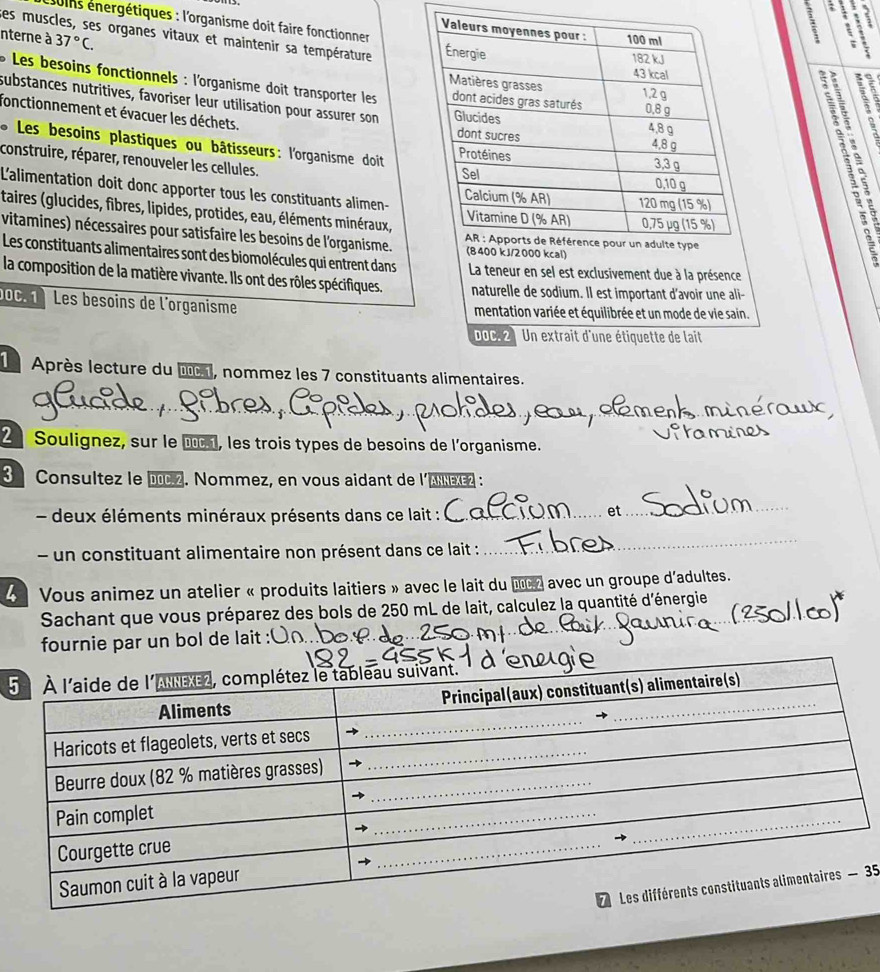 énergétiques : l'organisme doit faire fonctionner
ses muscles, ses organes vitaux et maintenir sa température
nterne à 37 °C.
• Les besoins fonctionnels : l'organisme doit transporter les
substances nutritives, favoriser leur utilisation pour assurer son
fonctionnement et évacuer les déchets.
• Les besoins plastiques ou bâtisseurs : l'organisme doit
construire, réparer, renouveler les cellules.
L'alimentation doit donc apporter tous les constituants alimen-
taires (glucides, fibres, lipides, protides, eau, éléments minéraux,
vitamines) nécessaires pour satisfaire les besoins de l'organisme.
Les constituants alimentaires sont des biomolécules qui entrent dans
la composition de la matière vivante. Ils ont des rôles spécifiques.
DOC. 1 Les besoins de l'organisme
Valeurs moyennes pour : 100 ml
Énergie 182 kJ
43 kcal
Matières grasses 1,2 g
dont acides gras saturés 0,8 g
Glucides 4,8 g
dont sucres 4,8 g
Protéines 3,3 g
Sel 0,10 g
Calcium (% AR) 120 mg (15 %)
Vitamine D (% AR) 0,75 µg (15 %)
AR : Apports de Référence pour un adulte type
(8400 kJ/2000 kcal)
La teneur en sel est exclusivement due à la présence
naturelle de sodium. Il est important d'avoir une ali-
mentation variée et équilibrée et un mode de vie sain.
DOC. 2 Un extrait d'une étiquette de lait
éfinitions
Maladies cardio
Assimilables : se dit d'une substa
être utilisée directement par les cellules
1 Après lecture du DOC. 1, nommez les 7 constituants alimentaires.
glucide, fibres, lipides, protides, eau, elements minéraux,
vitamines
2 Soulignez, sur le DOC. 1, les trois types de besoins de l'organisme.
3 Consultez le DOC. 2. Nommez, en vous aidant de l'ANNEXE 2 :
– deux éléments minéraux présents dans ce lait : Calcium et Sodium
– un constituant alimentaire non présent dans ce lait : Fibres
4 Vous animez un atelier « produits laitiers » avec le lait du DOC. 2 avec un groupe d'adultes.
Sachant que vous préparez des bols de 250 mL de lait, calculez la quantité d'énergie
fournie par un bol de lait : Un bol de 250 ml de lait faunira (250/100)*
182 = 455 KJ d'energie
5 À l'aide de l'ANNEXE 2, complétez le tableau suivant.
Aliments Principal(aux) constituant(s) alimentaire(s)
Haricots et flageolets, verts et secs → →
Beurre doux (82 % matières grasses) →
Pain complet →
Courgette crue →
Saumon cuit à la vapeur → →
7 Les différents constituants alimentaires – 35